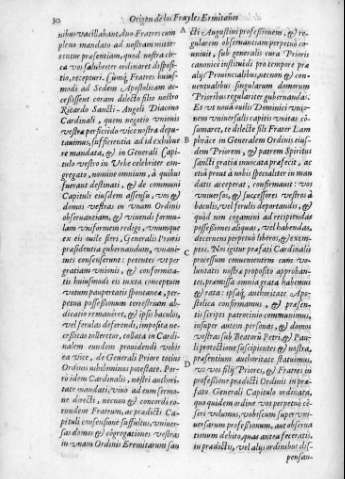 30
Origen de los Frayles Ermitaños
nibus vacillabant, duo Fratres cum
pleno mandato ad nostram mitte-
rentur præsentiam, quod nostra cir-
ca vos salubriter ordinaret dispositi-
tio, recepturi. Cumq; Fratres huius-
modi ad Sedem Apostolicam ac-
cessissent coram dilecto filio nostro
Ricardo Sancti Angeli Diacono
Cardinali, quem negotio vnionis
vestræ perficiendo vice nostra depu-
tauimus, sufficientia ad id exhibue
re mandata, & in Generali Capi-
tulo vestro in Vrbe celebriter con-
gregato, nomine omnium, à quibus
fuerant destinati, & de communi
Capituli eiusdem assensu, vos &
domos vestras in vnam Ordinis
obseruantiam, & viuendi formu-
lam vniformem redige, vnumque
ex eis ouile fieri, Generalis Prioris
præsidentia gubernandum, vnani-
mes consenserunt: petentes vt per
gratiam vnionis, & conformita-
tis huiusmodi eis iuxta conceptum
votum paupertatis spontaneæ, per-
petua possessionum terrestrium ab-
dicatio remaneret, & ipso baculis,
vel ferulas deferendi, imposita ne-
cessitas tolleretur, collata in Cardi-
nalem eundem prouidendi vobis
ea vice, de Generali Priore totius
Ordinis vobdminus potestate. Por-
rò idem Cardinalis, nostri authori-
tate mandati, viuo ad eum sermo-
ne directi, necnon & concordi ro-
gundem Fratrum, ac prædicti Ca-
pituli consensione suffultus, vniuer-
sas domos & congregationes vestras
in vnam Ordinis Eremitarum sau
A
cti Augustini professionem, & re-
gularem obseruantiam perpetuò co-
muniuit, sub generalis cura Prioris
canonicè instituti pro tempore præ
alijs Prouincialibus, necnon & con-
uentualibus singularum domorum
Prioribus regulariter gubernandas.
Et vt noua ouilis Dominici vnigo-
nem vniuersalis capitis vnitas co-
sumaret, te dilecte fili Frater Lam
B
phrance in Generalem Ordinis eius-
dem Priorem, & patrem Spiritus
Sancti gratia inuocata præfecit, ac
etiã prout à nobis specialiter in man
datis acceperat, confirmauit: vos
vniuersos, & successores vestros à
baculis, vel ferulis deportandis, &
quòd non cogamini ad recipiendas
possessiones aliquas, vel habendas,
decernens perpetuò liberos, & exem-
C
ptos. Nos igitur præfati Cardinalis
processum conuenientem cum vo-
luntatis nostræ proposito approban-
tes, præmissa omnia grata habemus
& rata: ipsaq; authoritate Apo-
stolica confirmamus, & præsen-
tis scripti patrocinio communimus,
insuper autem personas, & domos
vestras sub Beatorū Petri, & Pau-
li protectione suscipientes & nostra,
præsentium authoritate statuimus,
D
vt vos filij Priores, & Fratres in
professione prædicti Ordinis in præ-
fato Generali Capitulo ordinata,
quo quidem ordine vos perpetuò cē-
seri volumus, vobiscum super vni-
uersarum professionum, aut obserua
tionum debito, quas antea fecerati-
tis prædictis, vel alijs ordinibus dis-
pensan-